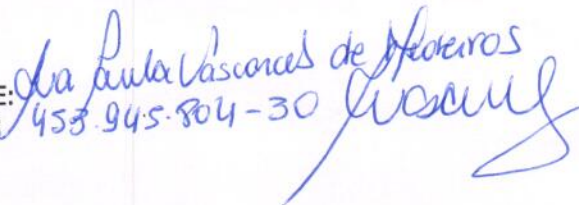 E: Ana Paula Vasconcelos de Medeiros
453.945.804-30